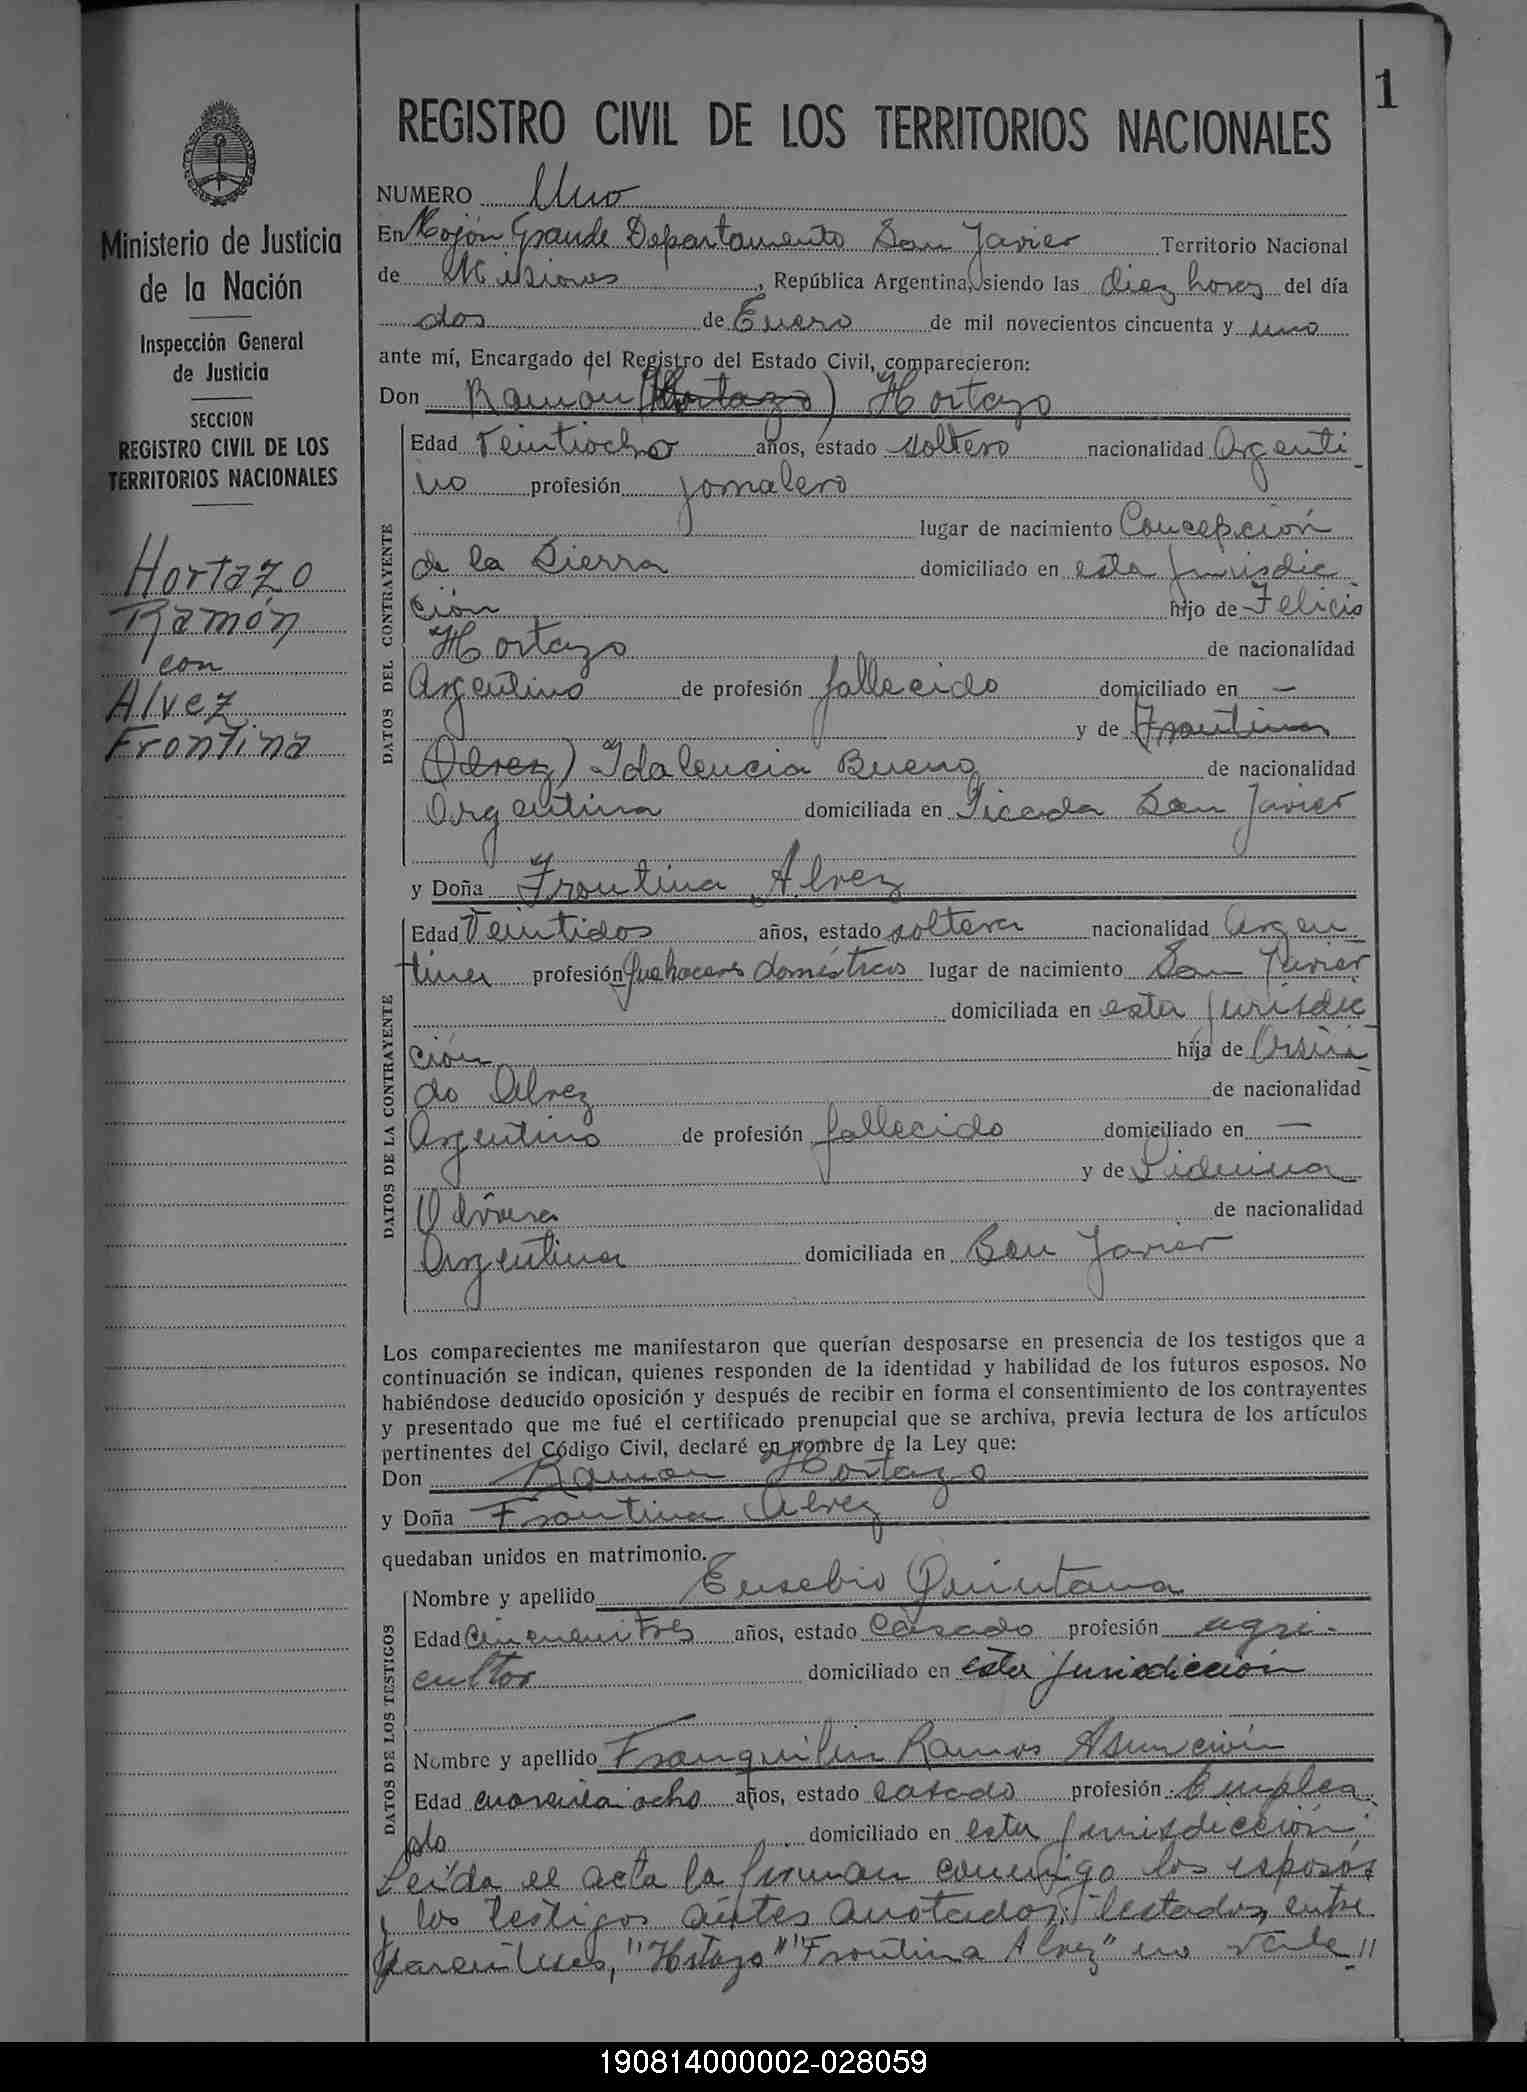 1
REGISTRO CIVIL DE LOS TERRITORIOS NACIONALES
Ministerio de Justicia
de la Nación
Inspección General
de Justicia
SECCION
REGISTRO CIVIL DE LOS
TERRITORIOS NACIONALES
Hortazo
Ramón
con
Alvez
Frontina
NUMERO Uno
En Mojón Grande Departamento San Javier Territorio Nacional
de Misiones, República Argentina, siendo las diez horas del día
dos de Enero de mil novecientos cincuenta y uno
ante mí, Encargado del Registro del Estado Civil, comparecieron:
Don Ramon (Hortazo) Hortazo
DATOS DEL CONTRAYENTE
Edad Veintiocho años, estado soltero nacionalidad Argenti
no profesión jornalero
lugar de nacimiento Concepción
de la Sierra domiciliado en esta jurisdic
ción hijo de Felicio
Hortazo de nacionalidad
Argentino de profesión fallecido domiciliado en —
y de (Frontina
Alvez) Idalencia Bueno de nacionalidad
Argentina domiciliada en Picada San Javier
y Doña Frontina Alvez
DATOS DE LA CONTRAYENTE
Edad Veintidos años, estado soltera nacionalidad Argen
tina profesión Quehaceres domésticos lugar de nacimiento San Javier
domiciliada en esta jurisdic
ción hija de
do Alvez de nacionalidad
Argentino de profesión fallecido domiciliado en —
y de
de nacionalidad
Argentina domiciliada en San Javier
Los comparecientes me manifestaron que querían desposarse en presencia de los testigos que a
continuación se indican, quienes responden de la identidad y habilidad de los futuros esposos. No
habiéndose deducido oposición y después de recibir en forma el consentimiento de los contrayentes
y presentado que me fué el certificado prenupcial que se archiva, previa lectura de los artículos
pertinentes del Código Civil, declaré en nombre de la Ley que:
Don Ramon Hortazo
y Doña Frontina Alvez
quedaban unidos en matrimonio.
DATOS DE LOS TESTIGOS
Nombre y apellido Eusebio Quintana
Edad años, estado Casado profesión agri-
cultor domiciliado en esta jurisdicción
Nombre y apellido Franquilin Ramos Asunción
Edad años, estado casado profesión Emplea
do domiciliado en esta jurisdicción.
Leida el acta la firman conmigo los esposos
y los testigos antes anotados. Testados, entre
parentesis, "Hotazo" "Frontina Alvez" no vale "
190814000002-028059